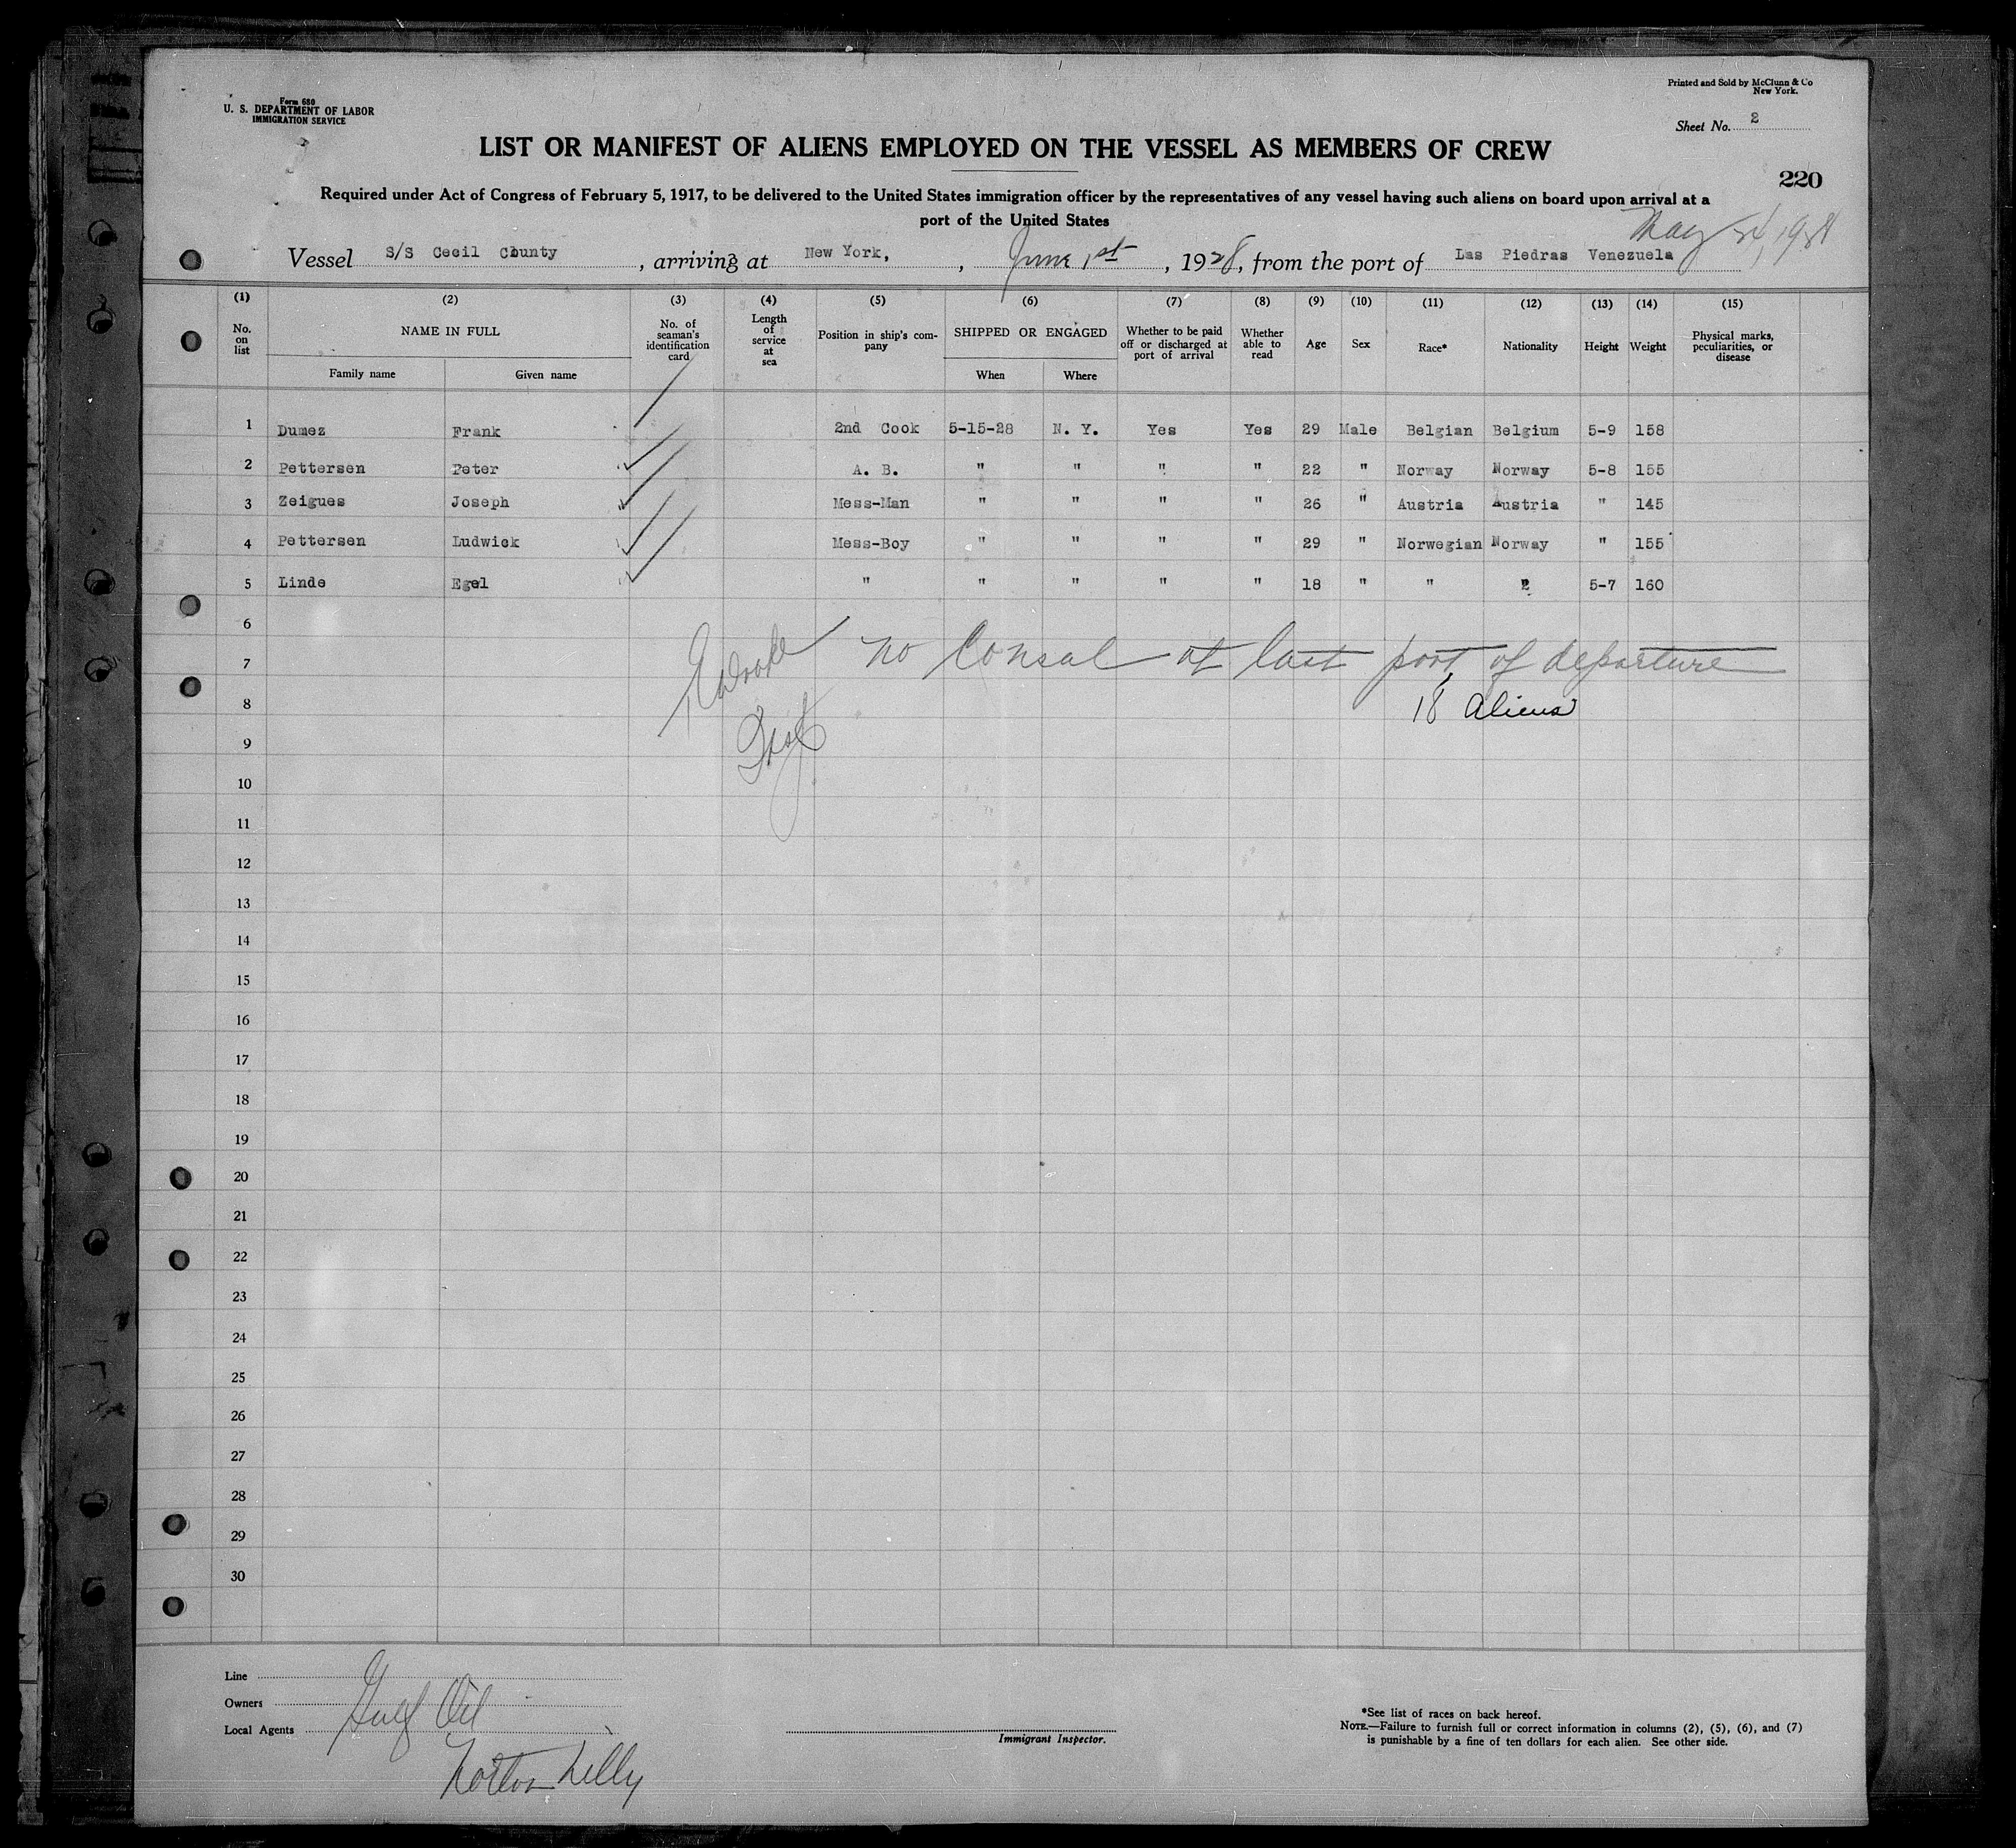 Form 680
U. S. DEPARTMENT OF LABOR
IMMIGRATION SERVICE
Printed and Sold by McClunn & Co
New York.
Sheet No. 2
LIST OR MANIFEST OF ALIENS EMPLOYED ON THE VESSEL AS MEMBERS OF CREW
220
Required under Act of Congress of February 5, 1917, to be delivered to the United States immigration officer by the representatives of any vessel having such aliens on board upon arrival at a
port of the United States
May 24, 1928
Vessel S/S Cecil County, arriving at New York, , June 1st, 1928, from the port of Las Piedras Venezuela
(1) (2) (3) (4) (5) (6) (7) (8) (9) (10) (11) (12) (13) (14) (15)
No. on list NAME IN FULL No. of seaman's identification card Length of service at sea Position in ship's company SHIPPED OR ENGAGED Whether to be paid off or discharged at port of arrival Whether able to read Age Sex Race* Nationality Height Weight Physical marks, peculiarities, or disease
Family name Given name When Where
1 Dumez Frank 2nd Cook 5-15-28 N. Y. Yes Yes 29 Male Belgian Belgium 5-9 158
2 Pettersen Peter A. B. " " " " 22 " Norway Norway 5-8 155
3 Zeigues Joseph Mess-Man " " " " 26 " Austria Austria " 145
4 Pettersen Ludwick Mess-Boy " " " " 29 " Norwegian Norway " 155
5 Linde Egel " " " " " 18 " " " 5-7 160
6
7 no Consul at last port of departure
8 18 Aliens
9
10
11
12
13
14
15
16
17
18
19
20
21
22
23
24
25
26
27
28
29
30
Line
Owners Gulf Oil
Local Agents
Norton Lilly
Immigrant Inspector.
*See list of races on back hereof.
NOTE.—Failure to furnish full or correct information in columns (2), (5), (6), and (7)
is punishable by a fine of ten dollars for each alien. See other side.